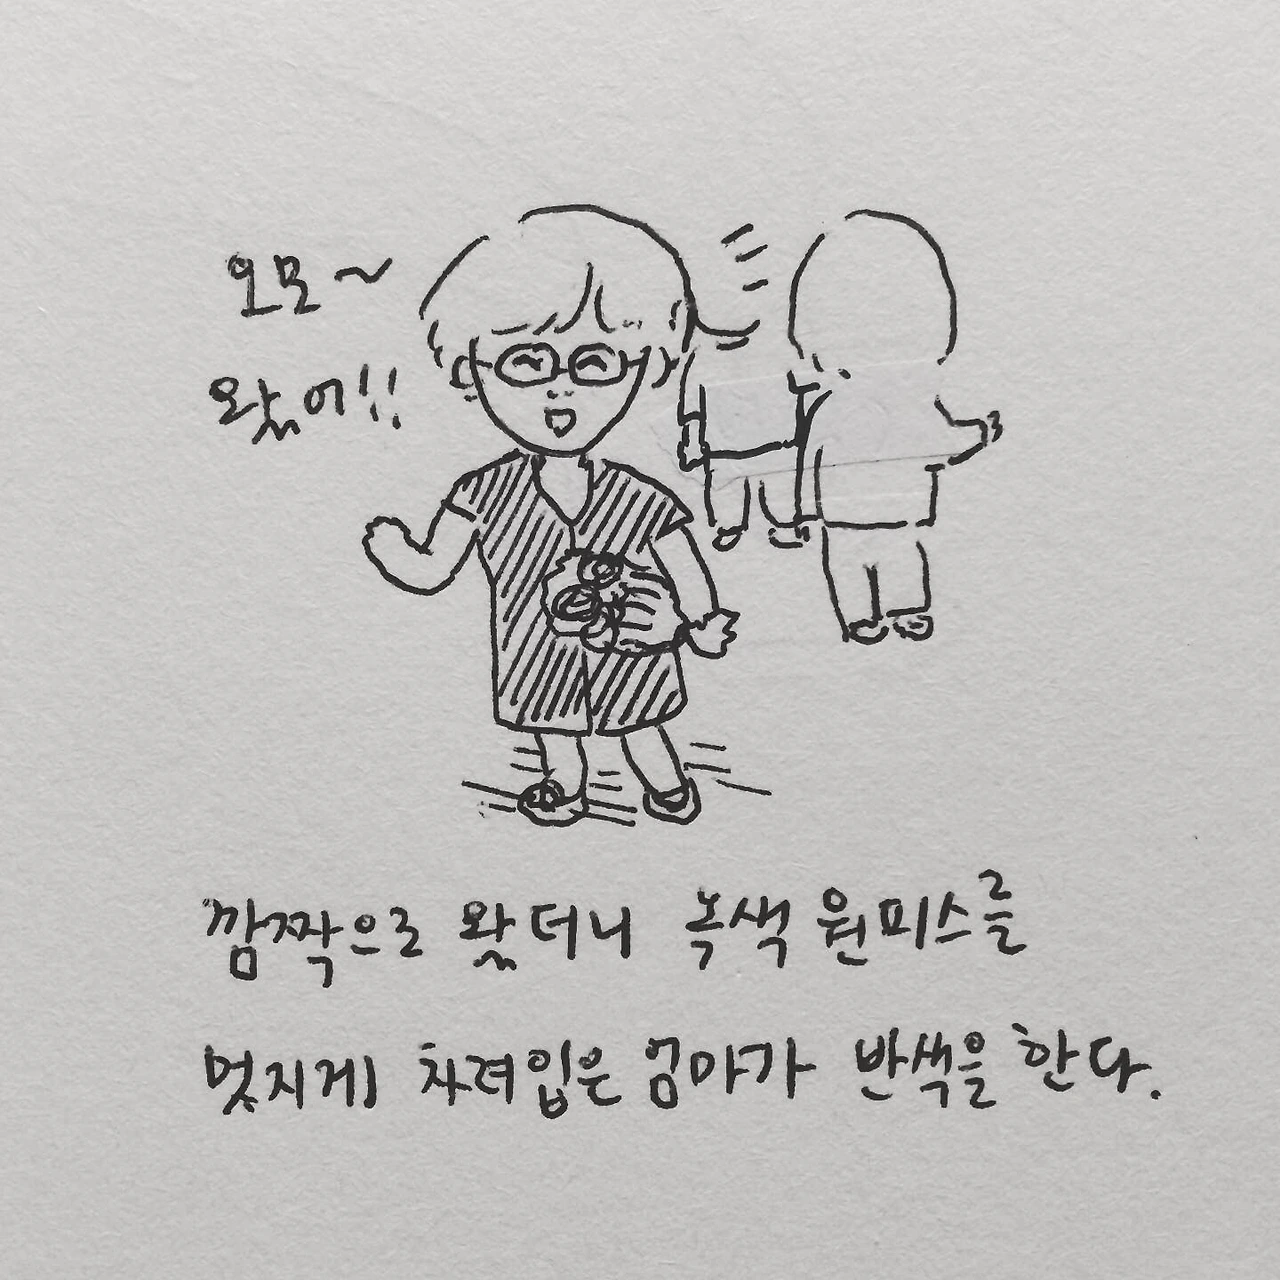 오모~
왔어!!
깜짝으로 왔더니 녹색 원피스를
멋지게 차려입은 엄마가 반색을 한다.